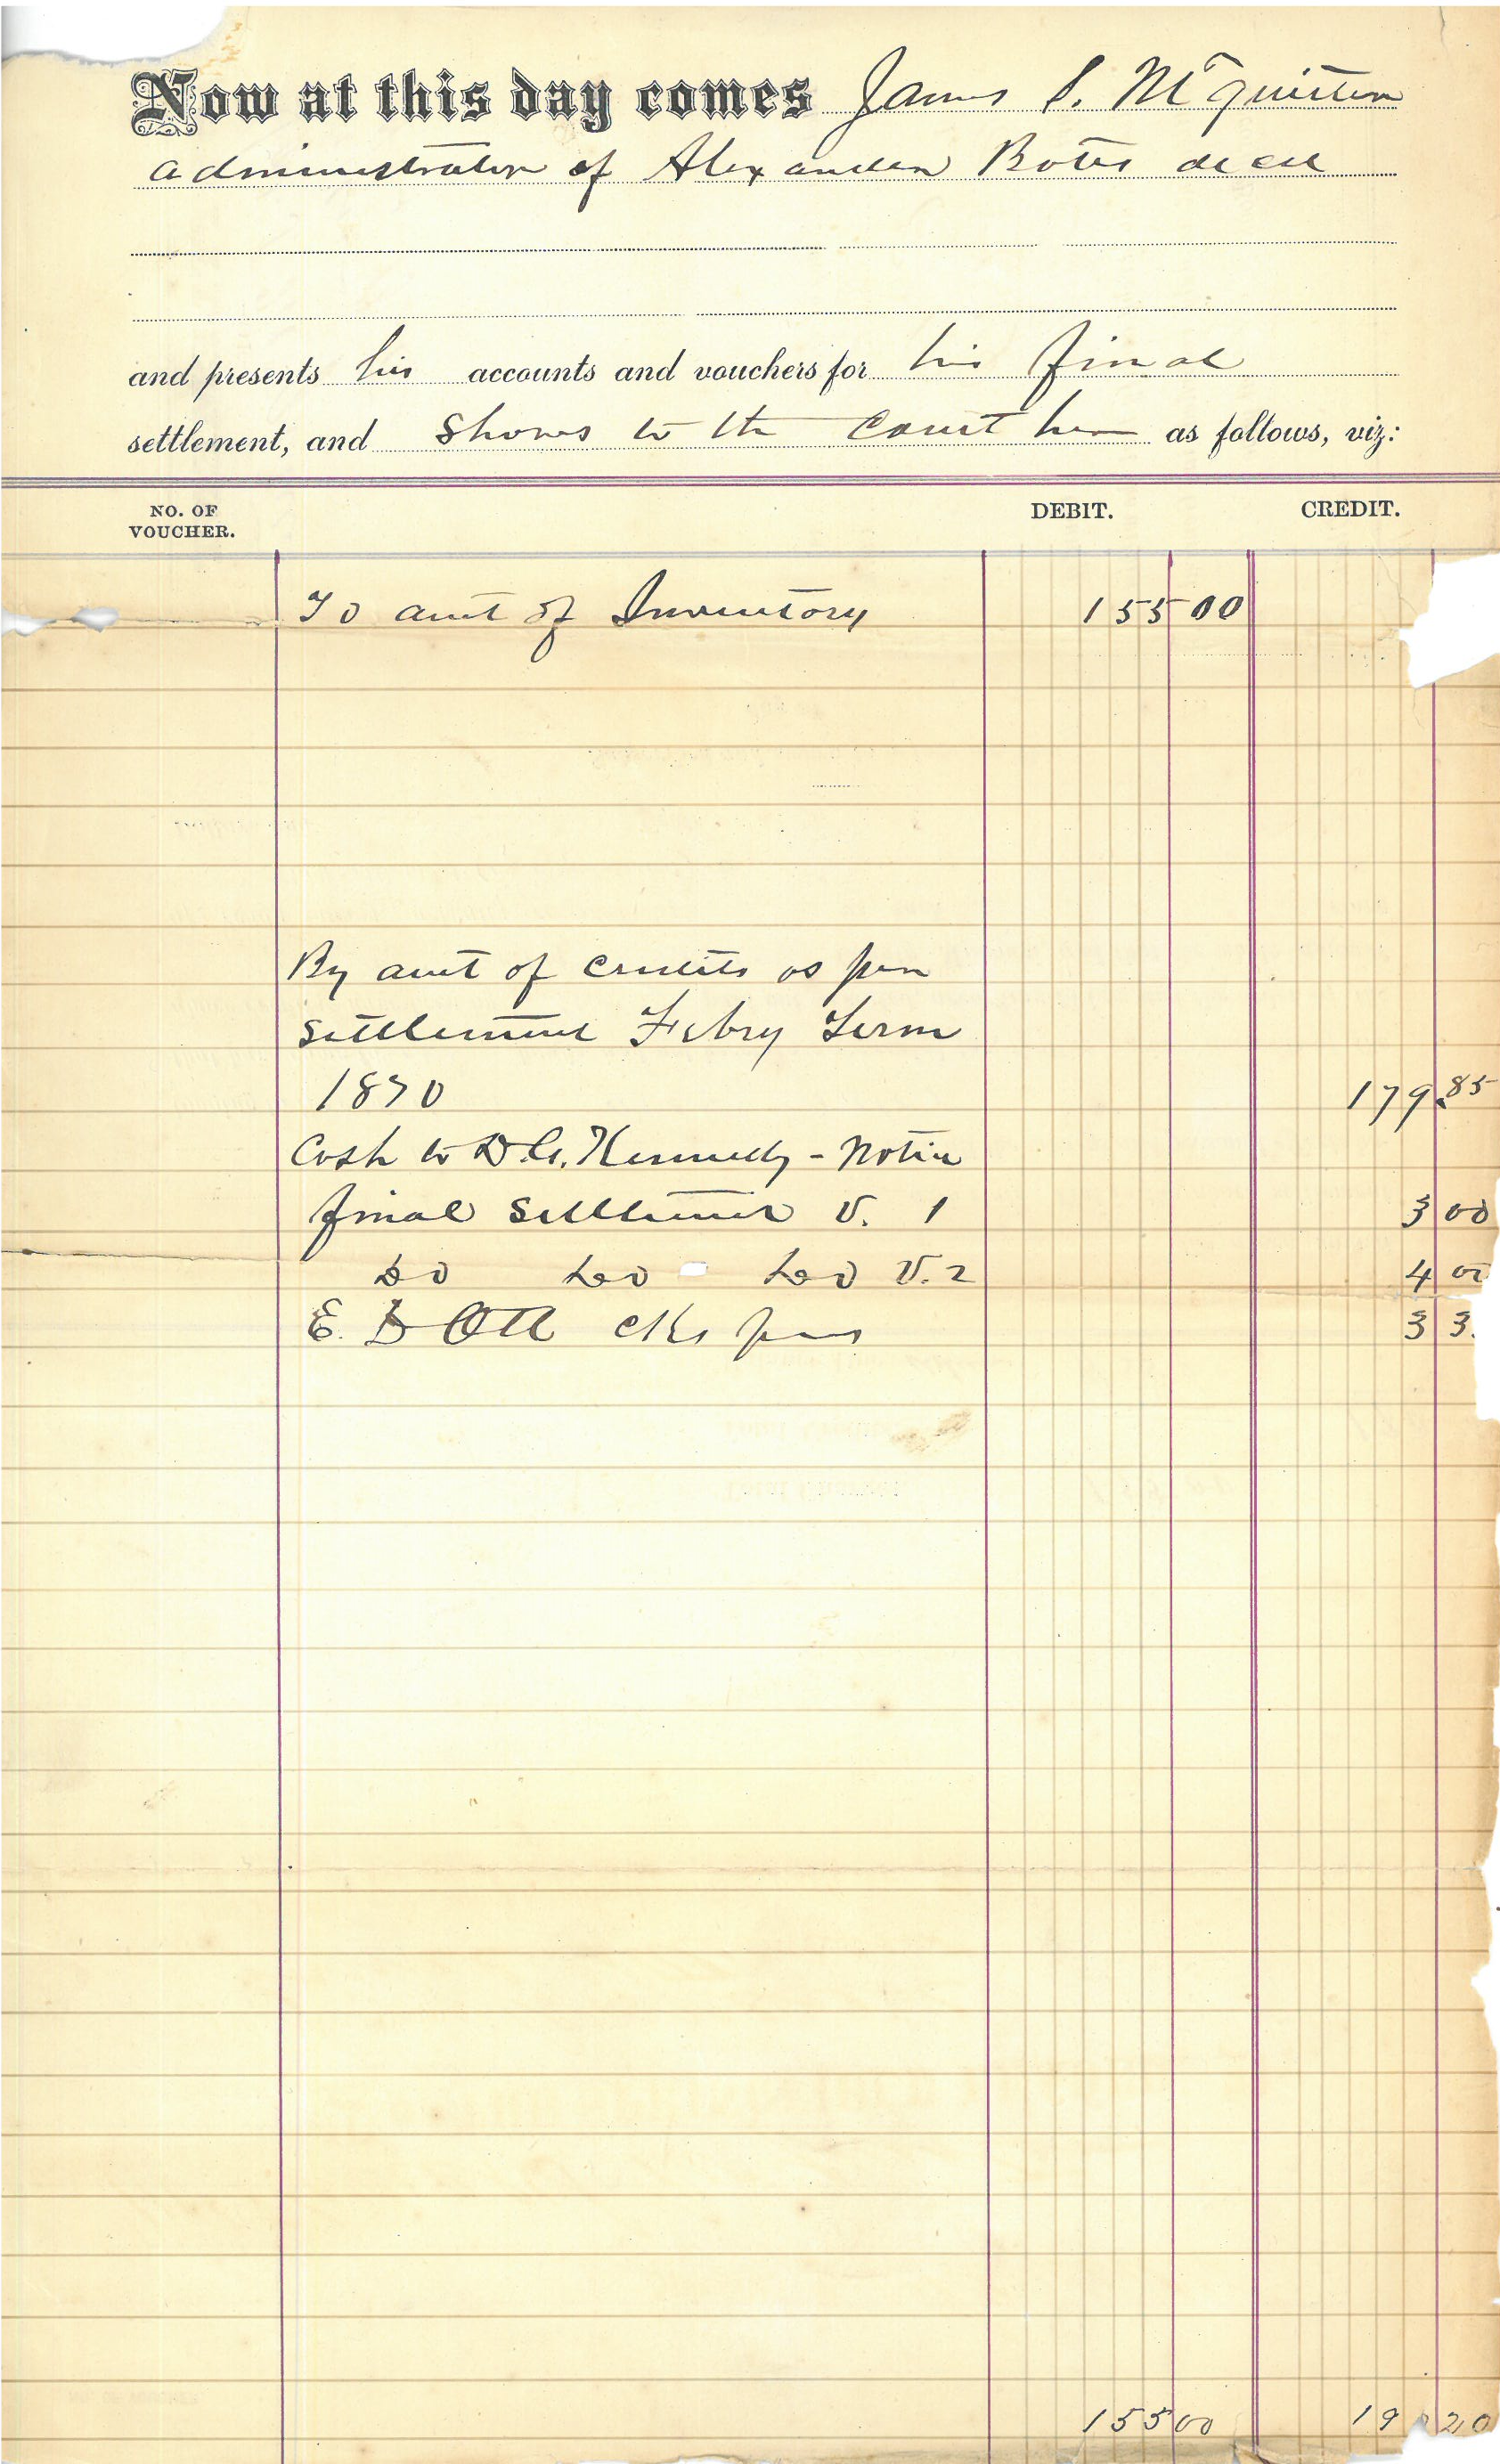 Now at this day comes James S. McQuitten
administrator of Alexander Botts decd
and presents his accounts and vouchers for his final
settlement, and shows to the Court here as follows, viz:
NO. OF VOUCHER. DEBIT. CREDIT.
To amt of Inventory 155 00
By amt of credits as per
settlement Febry Term
1870 179.85
Cash to D. C. Kennedy - Notice
final settlement V. 1 3 00
do do do V. 2 4 00
E. D Ott clks fees 3 3
155 00 19 20